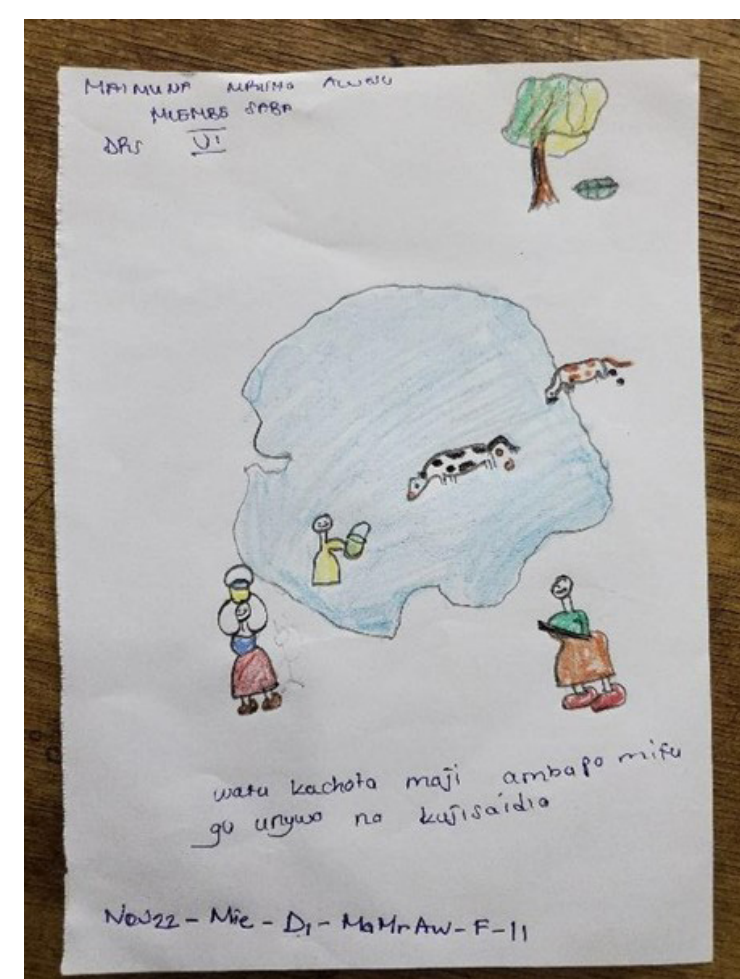 MAIMUNA MRISHO AWESU
MIEMBE SABA
DRS VI
watu kachota maji ambapo mifu
gu unywa na kujisaidia
Nov22 - Mie - D1 - MaMrAw - F - 11